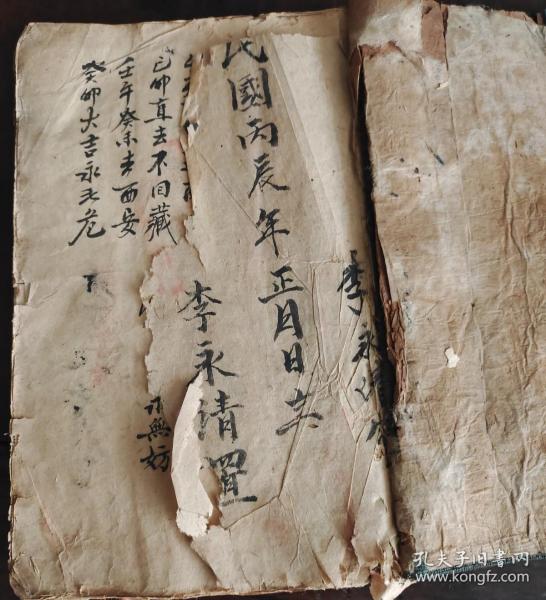 李永
民國丙辰年正月日立
李永清置
己卯直去不回藏
壬午癸未去西安
癸卯大吉永无危
永無妨
孔夫子旧书网
www.kongfz.com